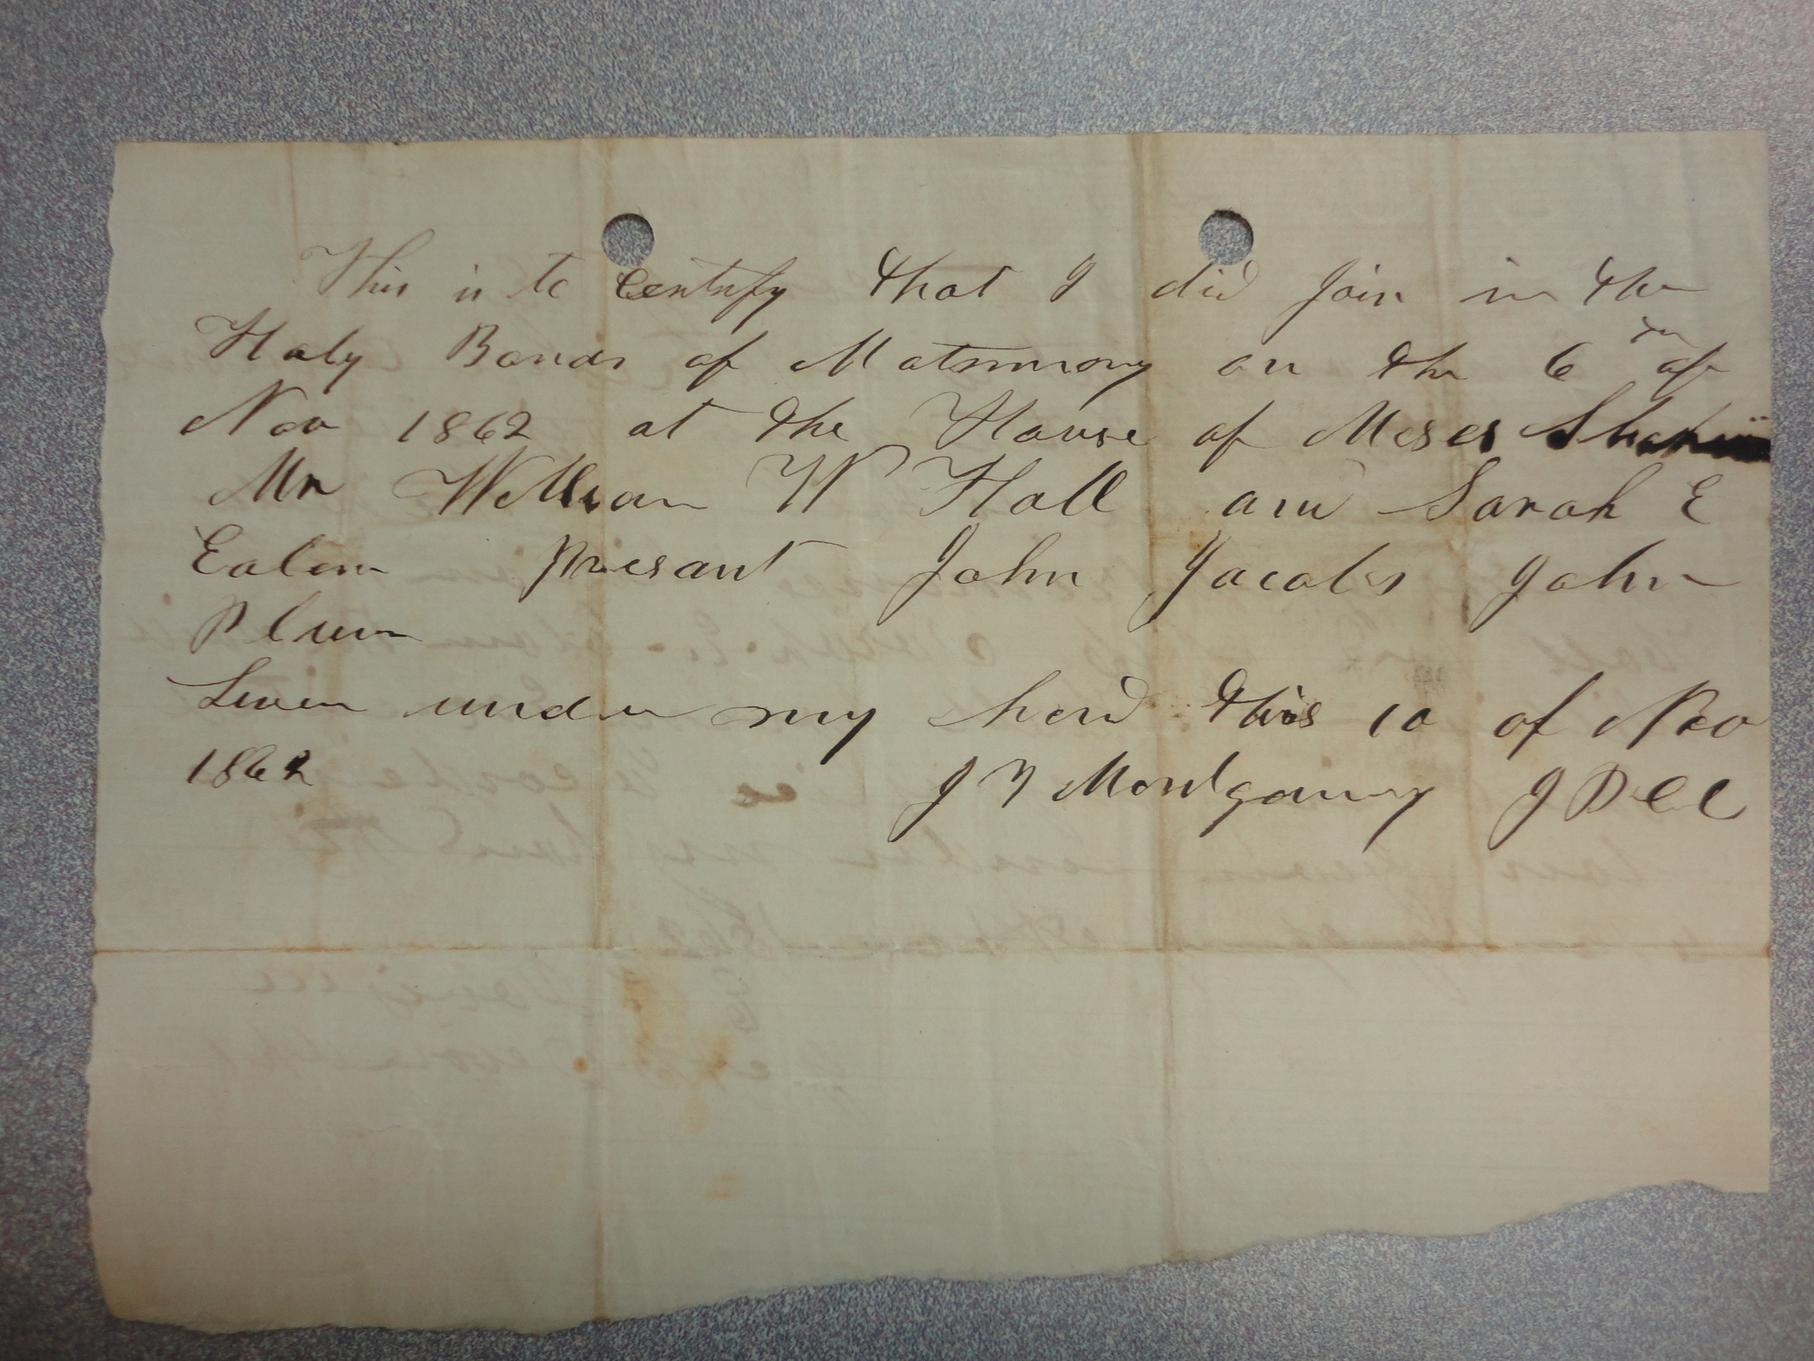 This is to Certify that I did Join in the
Holy Bonds of Matrimony on the 6 th of
Nov 1862 at the House of Moses
Mr William W Hall and Sarah E
Ealem presant John Jacobs John
Plum
Given under my hand this 10 of Nov
1862 J Y Montgomery J P C C